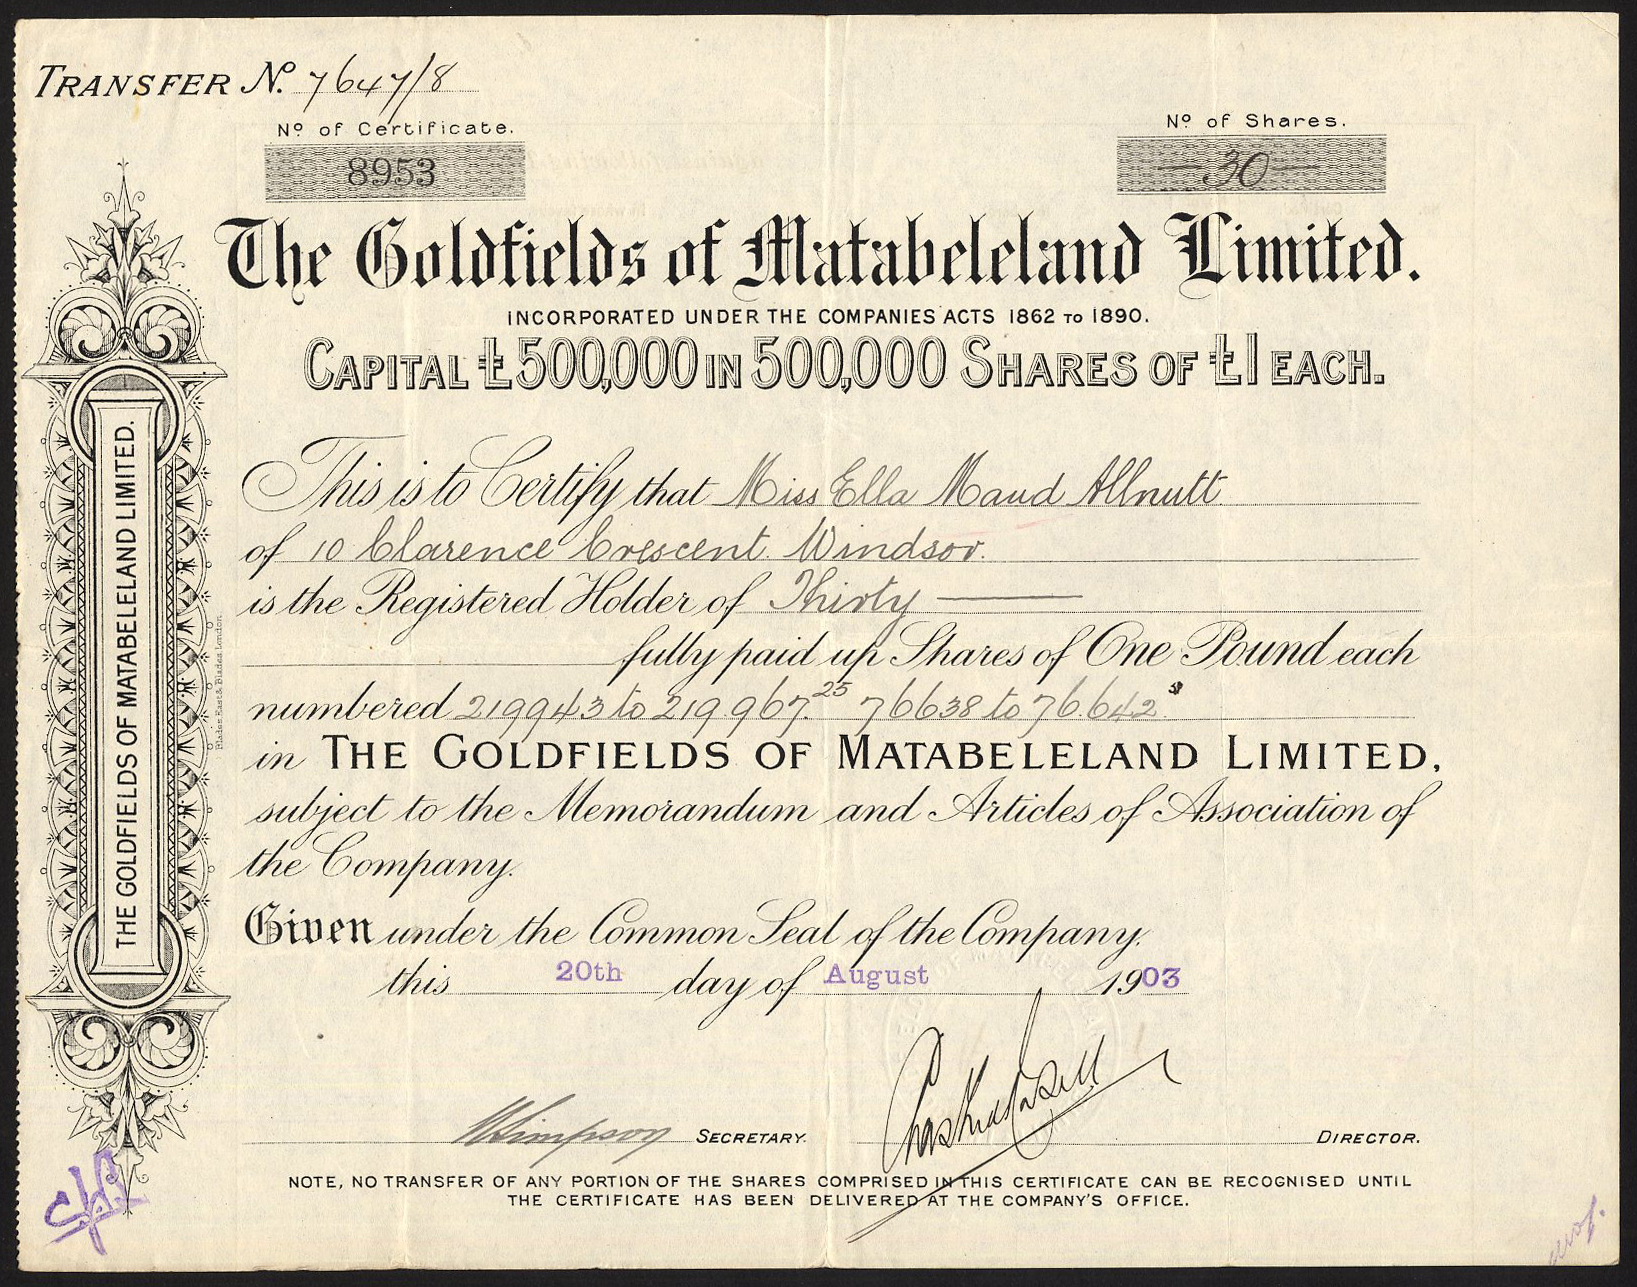 TRANSFER No. 7647/8
No of Certificate.
8953
No of Shares.
30
The Goldfields of Matabeleland Limited.
INCORPORATED UNDER THE COMPANIES ACTS 1862 TO 1890.
CAPITAL £500,000 IN 500,000 SHARES OF £1 EACH.
THE GOLDFIELDS OF MATABELELAND LIMITED.
Blades, East & Blades, London.
This is to Certify that Miss Ella Maud Allnutt
of 10 Clarence Crescent. Windsor.
is the Registered Holder of Thirty
fully paid up Shares of One Pound each
numbered 219943 to 219.967. 25 76638 to 76.642 5
in THE GOLDFIELDS OF MATABELELAND LIMITED,
subject to the Memorandum and Articles of Association of
the Company.
Given under the Common Seal of the Company.
this 20th day of August 1903
Simpson SECRETARY.
DIRECTOR.
NOTE, NO TRANSFER OF ANY PORTION OF THE SHARES COMPRISED IN THIS CERTIFICATE CAN BE RECOGNISED UNTIL
THE CERTIFICATE HAS BEEN DELIVERED AT THE COMPANY'S OFFICE.